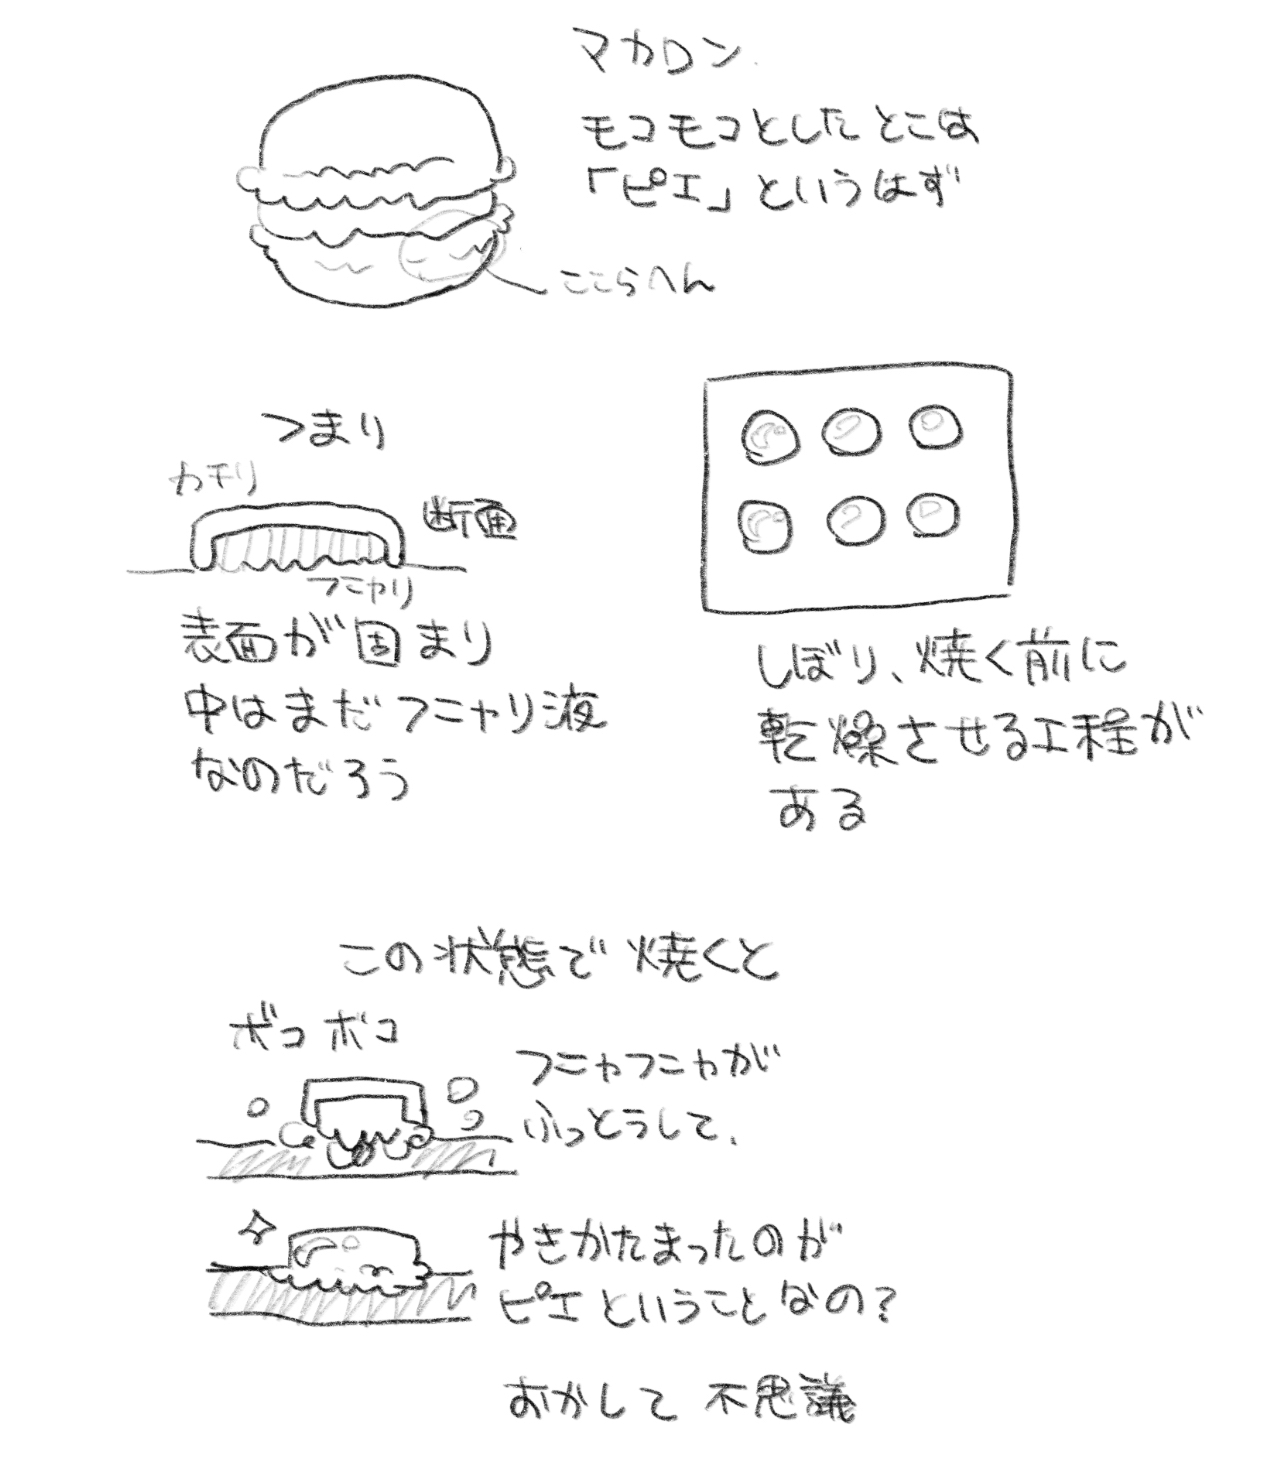 マカロン
モコモコとしたとこは
「ピエ」というはず
ここらへん
つまり
カチリ
断面
フニャリ
表面が固まり
中はまだフニャリ液
なのだろう
しぼり、焼く前に
乾燥させる工程が
ある
この状態で焼くと
ボコボコ
フニャフニャが
ふっとうして、
やきかたまったのが
ピエということなの?
おかして不思議